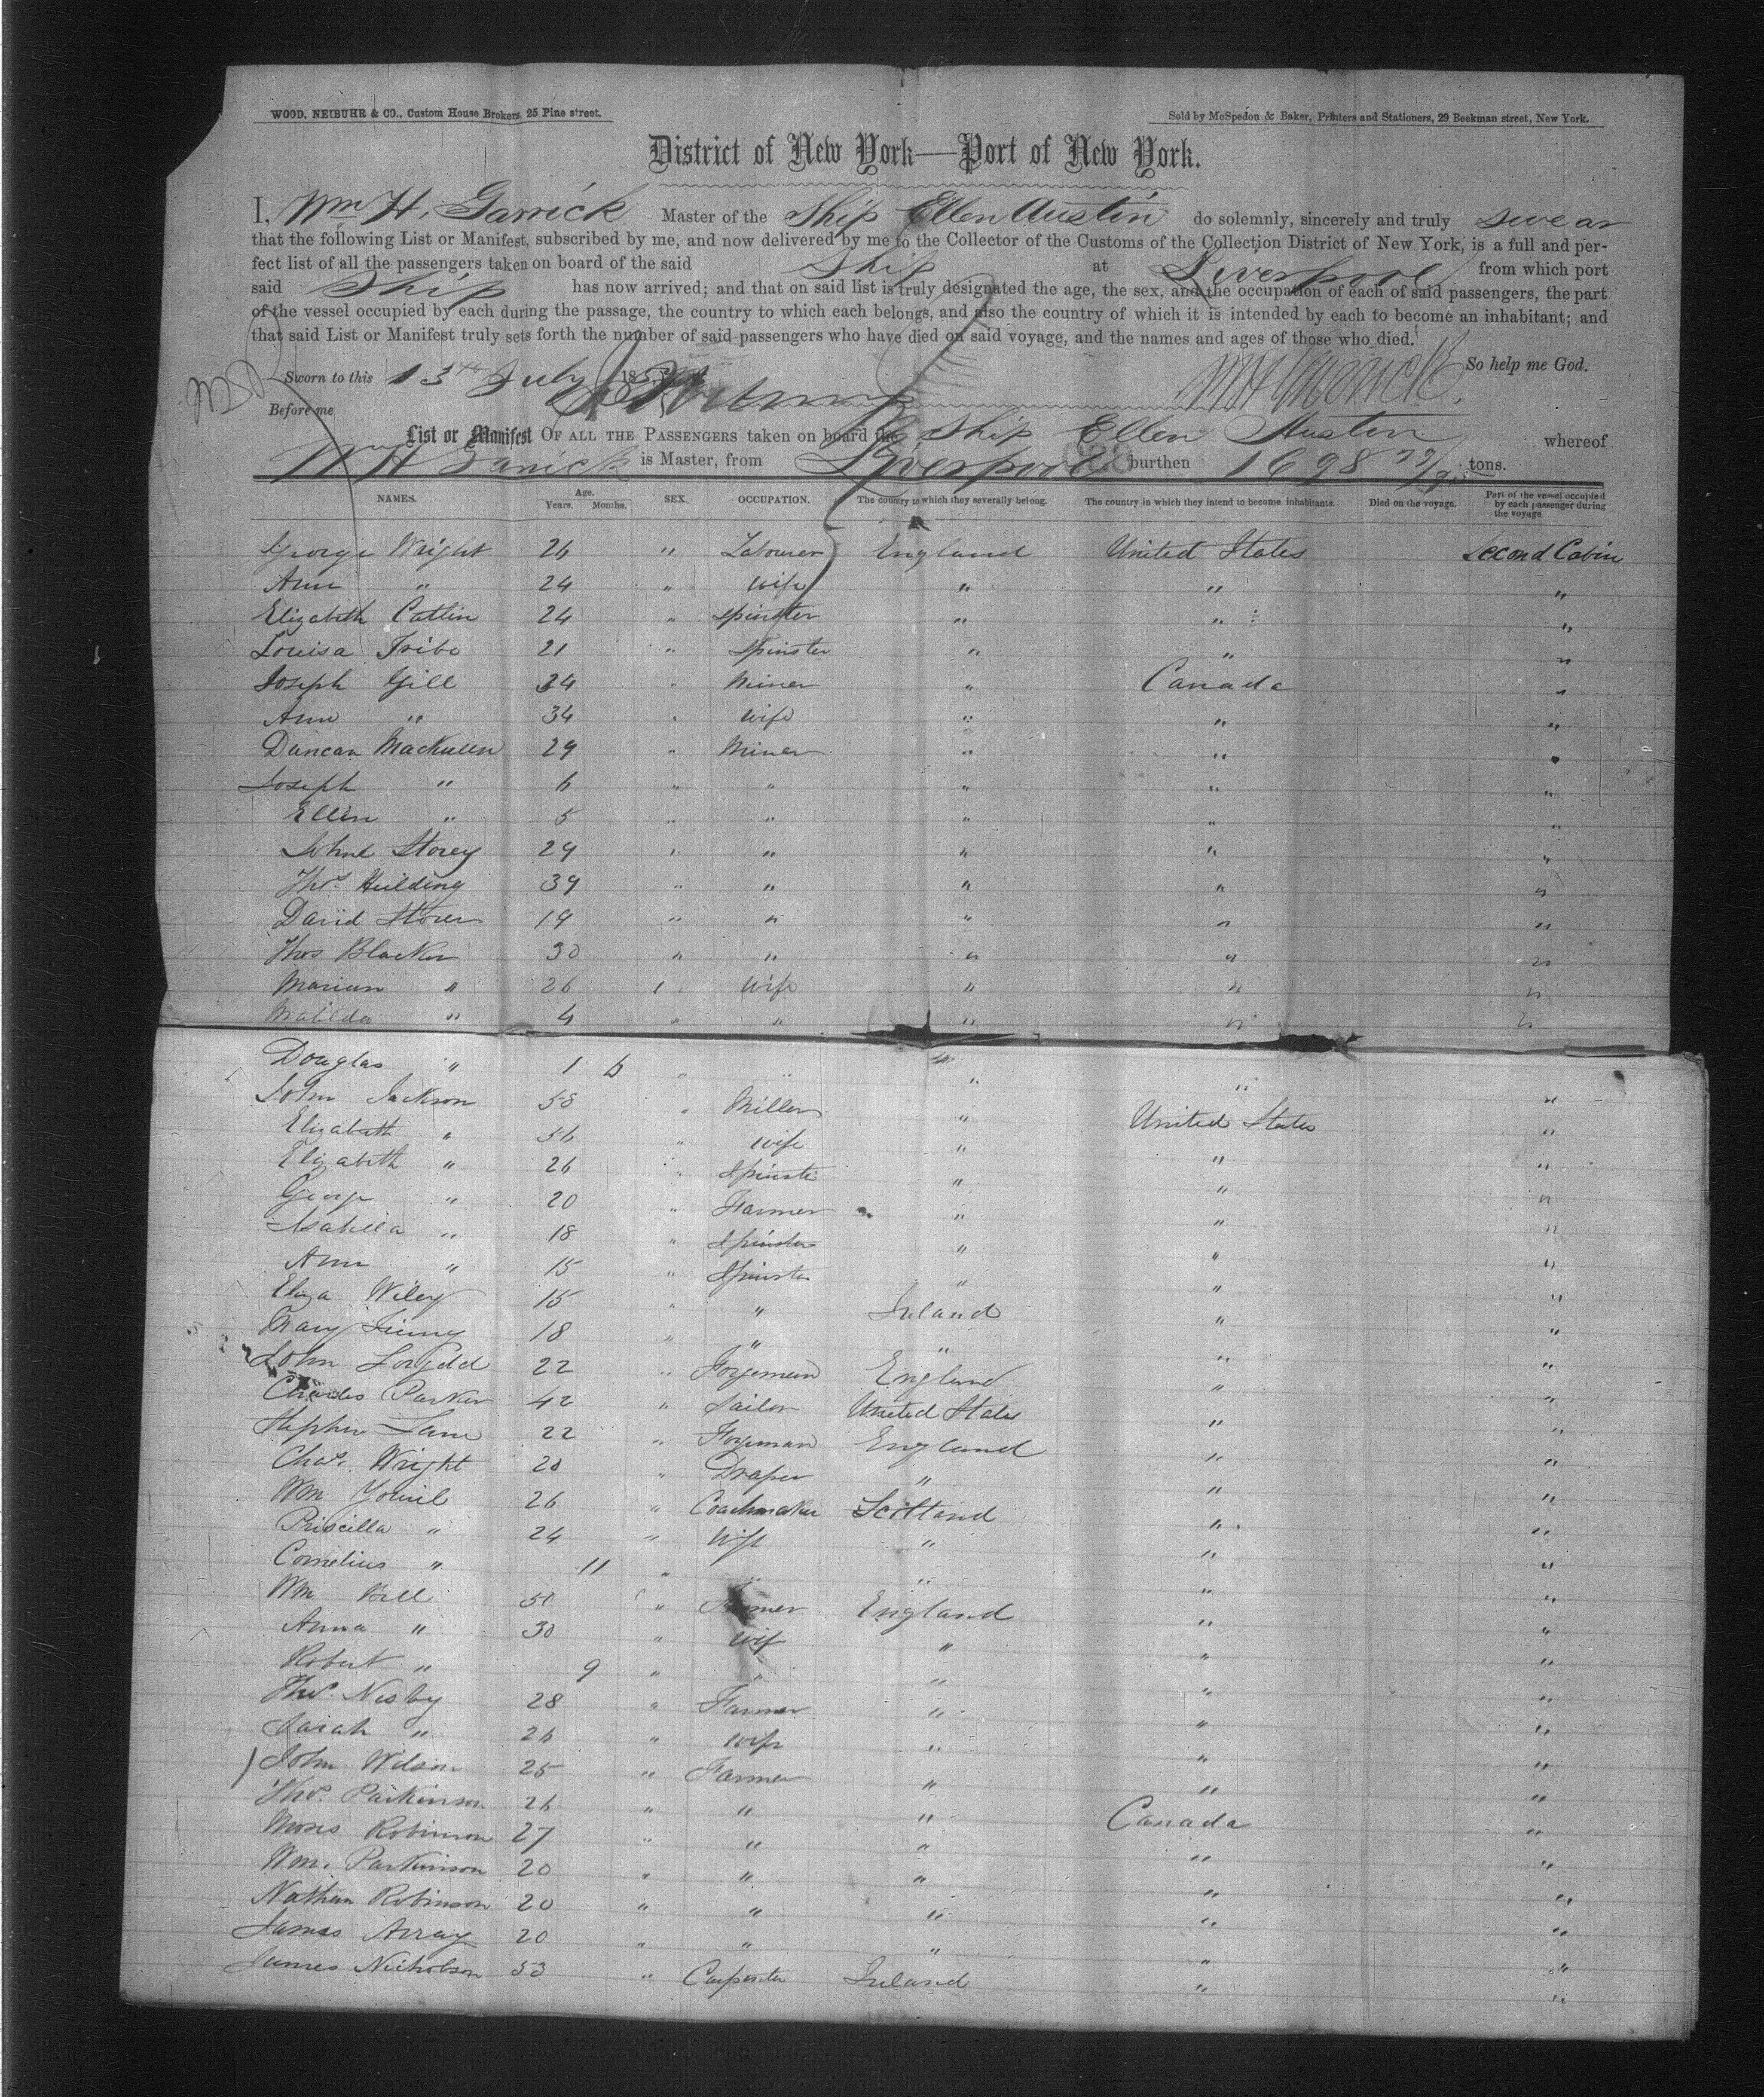 WOOD, NEIBUHR & CO., Custom House Brokers, 25 Pine street.
Sold by McSpedon & Baker, Printers and Stationers, 29 Beekman street, New York.
District of New York—Port of New York.
I, Wm H. Garrick Master of the Ship Ellen Austin do solemnly, sincerely and truly swear
that the following List or Manifest, subscribed by me, and now delivered by me to the Collector of the Customs of the Collection District of New York, is a full and per-
fect list of all the passengers taken on board of the said Ship at Liverpool from which port
said Ship has now arrived; and that on said list is truly designated the age, the sex, and the occupation of each of said passengers, the part
of the vessel occupied by each during the passage, the country to which each belongs, and also the country of which it is intended by each to become an inhabitant; and
that said List or Manifest truly sets forth the number of said passengers who have died on said voyage, and the names and ages of those who died.
So help me God.
Sworn to this 13th July 185
WH Garrick
Before me
List or Manifest OF ALL THE PASSENGERS taken on board the Ship Ellen Austin whereof
Wm H Garrick is Master, from Liverpool burthen 1698 tons.
NAMES. Age. Years. Months. SEX. OCCUPATION. The country to which they severally belong. The country in which they intend to become inhabitants. Died on the voyage. Part of the vessel occupied by each passenger during the voyage
George Wright 26 " Labourer England United States Second Cabin
Ann " 24 " wife " " "
Elizabeth Catlin 24 " spinster " " "
Louisa Tribe 21 " Spinster " " "
Joseph Gill 34 " Miner " Canada "
Ann " 34 " wife " " "
Duncan 29 " Miner " " "
Joseph " 6 " " " " "
Ellen " 5 " " " " "
Storey 29 " " " " "
Thos. 39 " " " " "
David 19 " " " " "
Thos Blacker 30 " " " " "
Marian " 26 " wife " " "
Matilda " 4 " " " " "
Douglas " 1 6 " " " " "
John Jackson 58 " Miller " United States "
Elizabeth " 56 " wife " " "
Elizabeth " 26 " Spinster " " "
George " 20 " Farmer " " "
Isabella " 18 " Spinster " " "
Ann " 15 " Spinster " " "
Eliza Wiley 15 " " Ireland " "
Mary 18 " " " " "
John 22 " Forgeman England " "
Charles Parker 42 " Sailor United States " "
Stephen 22 " Forgeman England " "
Chas. Wright 20 " Draper " " "
Wm 26 " Coachmaker Scotland " "
Priscilla " 24 " Wife " " "
Cornelius " 11 " " " " "
Wm Bell " Farmer England " "
Anna " 30 " wife " " "
Robert " 9 " " " " "
Thos. Nesby 28 " Farmer " " "
Sarah " 26 " wife " " "
John Wilson 25 " Farmer " " "
Thos. Parkinson 26 " " " Canada "
Moses Robinson 27 " " " " "
Wm. Parkinson 20 " " " " "
Nathan Robinson 20 " " " " "
James Array 20 " " " " "
James Nicholson 53 " Carpenter Ireland " "